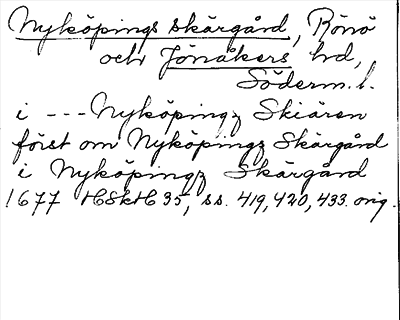 Nyköpings skärgård, Rönö
och Jönåkers hd,
Söderm. l.
i --- Nyköpingz Skiären
först om Nyköpings Skärgård
i Nyköpingz Skärgård
1677 HSkH 35, ss. 419, 420, 433. orig.